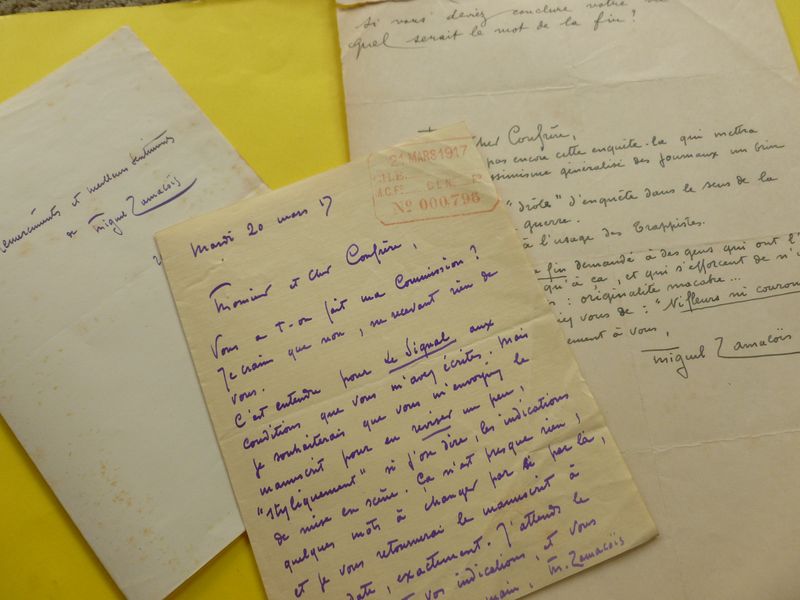 remerciements et meilleurs sentiments
de Miguel Zamacoïs
21 MARS 1917
Nº 000,796
Mardi 20 mars 17
Monsieur et cher Confrère,
Vous a-t-on fait ma Commission?
Je crains que non, ne recevant rien de
vous.
C'est entendu pour Le Signal aux
conditions que vous m'avez écrites. Mais
je souhaiterais que vous m'envoyiez le
manuscrit pour en reviser un peu,
"styliquement" si j'ose dire, les indications
de mise en scène. Ça n'est presque rien;
quelques mots à changer par si par là,
et je vous retournerai le manuscrit à
date, exactement. J'attends le
vos indications, et vous
main, M. Zamacoïs
Si vous deviez conclure votre
quel serait le mot de la fin?
cher Confrère,
pas encore cette enquête-là qui mettra
pessimisme généralisé des journaux un brin
"drôle" d'enquête dans le sens de la
guerre.
à l'usage des Trappistes.
fin demandé à des gens qui ont l'
qu'à ça, et qui s'efforcent de n'
: originalité macabre...
vous de: "Ni fleurs ni couron
ement à vous,
Miguel Zamacoïs